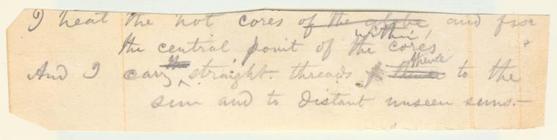 I heat the hot cores of the globe and fix
within
the central point of the cores,
And I carry straight threads thence to the
sun and to distant unseen suns.—